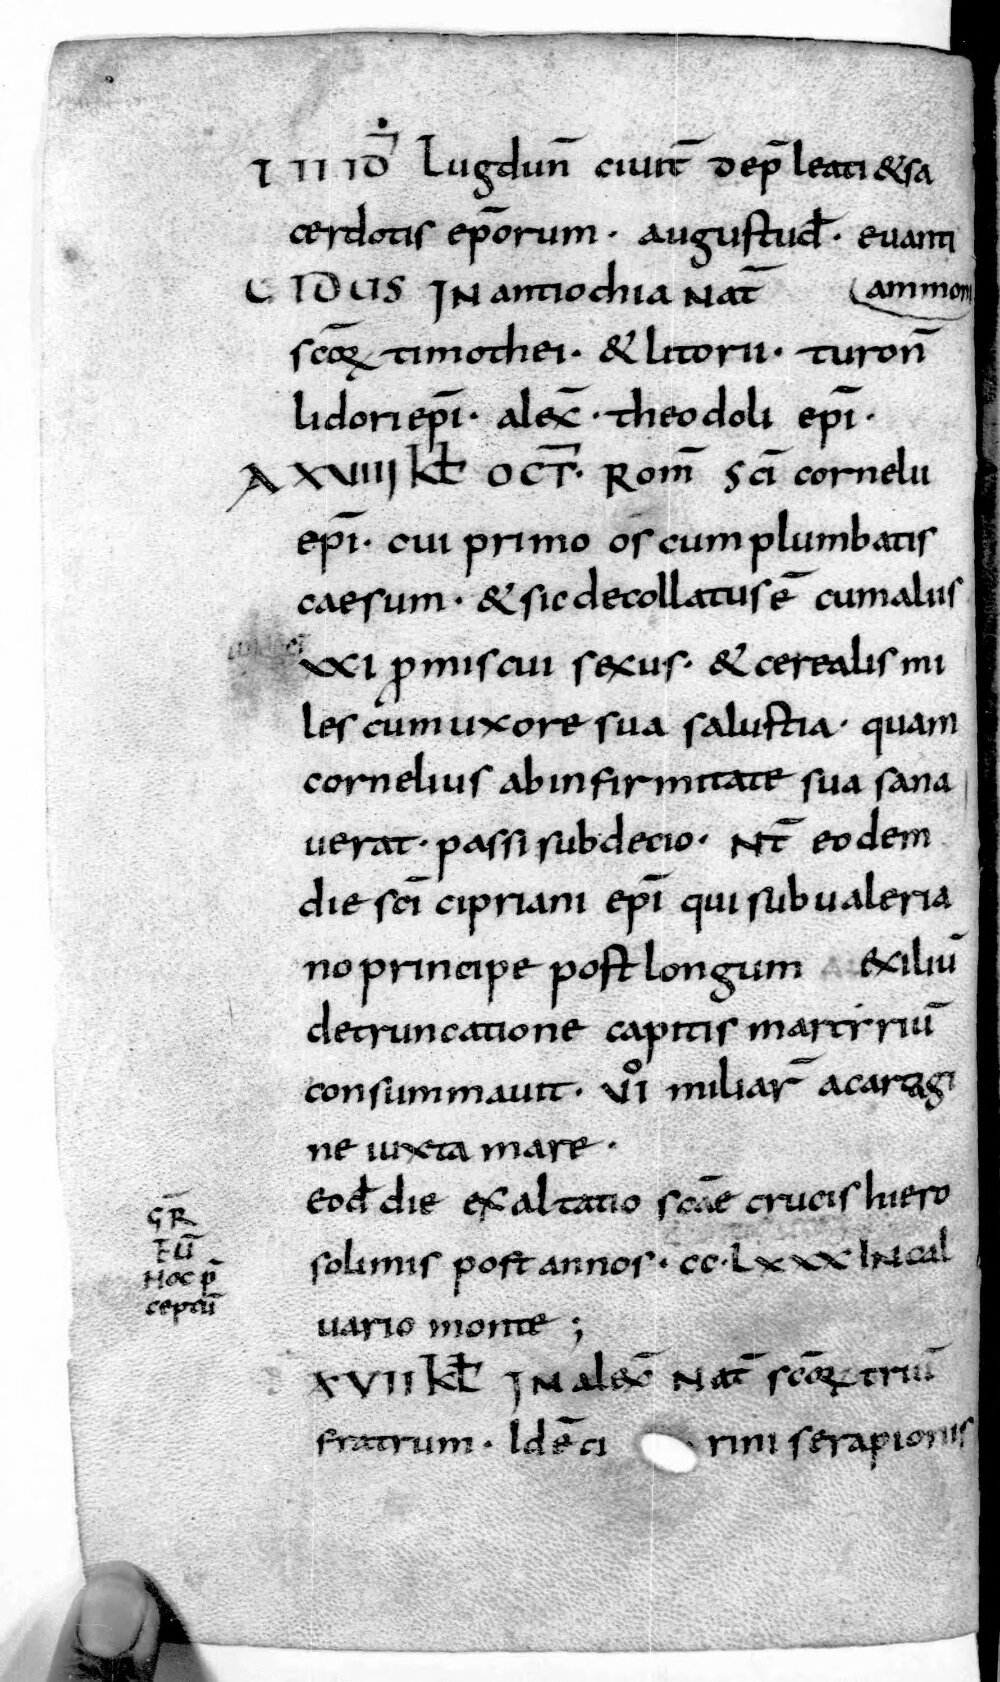 I III ID̄ Lugdun̄ ciuit̄ dep̄ leati & sa
cerdotis ep̄orum · augustuđ · euanti
C IDUS IN antiochia Nat̄ ammoni
sc̄oꝝ timothei · & litorii · turon̄
lidori ep̄i · alex̄ · theodoli ep̄i ·
A XVIIII kł OCT̄ · Rom̄ Sc̄i cornelii
ep̄i · cui primo os̄ cum plumbatis
caesum · & sic decollatus ē cum aliis
XXI ꝓmiscui sexus · & cerealis mi
les cum uxore sua salustia · quam
cornelius ab infirmitate sua sana
uerat · passi sub decio · Nt̄ eodem
die sc̄i cipriani ep̄i qui sub ualeria
no principe post longum exiliū
detruncatione capitis martẏriū
consummauit · VI° miliar̄ a cartagi
ne iuxta mare ·
eođ die exaltatio sc̄ae crucis hiero
solimis post annos · CC · LXXX IN cal
uario monte ;
G̅R̅
Hoc p̄
ceptū
XVII kł IN alex̄ Nat̄ sc̄oꝝ triū
fratrum · Id ē ci rini serapionis